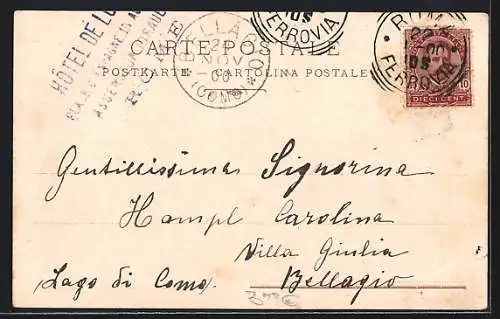 HÔTEL DE
ROME
BELLAGIO
NOV
(COMO)
FERROVIA
ROMA
FERROVIA
10
DIECI CENT.
CARTE POSTALE
POSTKARTE - CARTOLINA POSTALE
Gentilissima Signorina
Hampl Carolina
Villa Giulia
Lago di Como. Bellagio